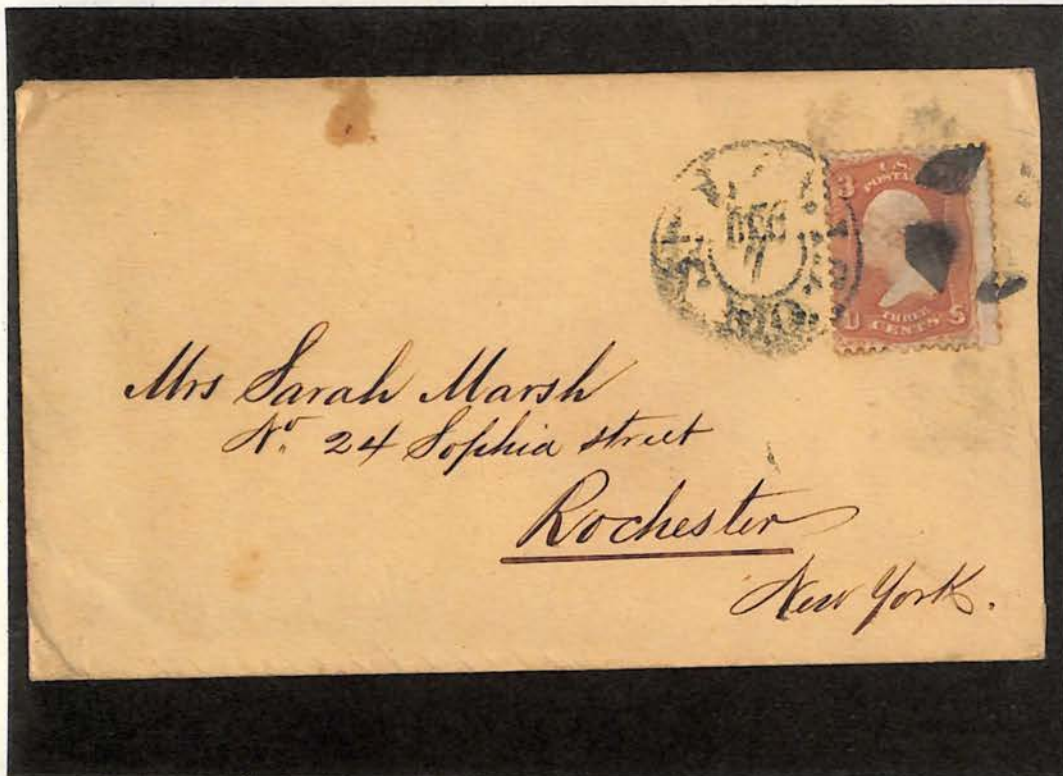 U.S.
POSTAGE
3
DEC
MO.
U S
THREE
CENTS
Mrs Sarah Marsh
No. 24 Sophia street
Rochester
New York.